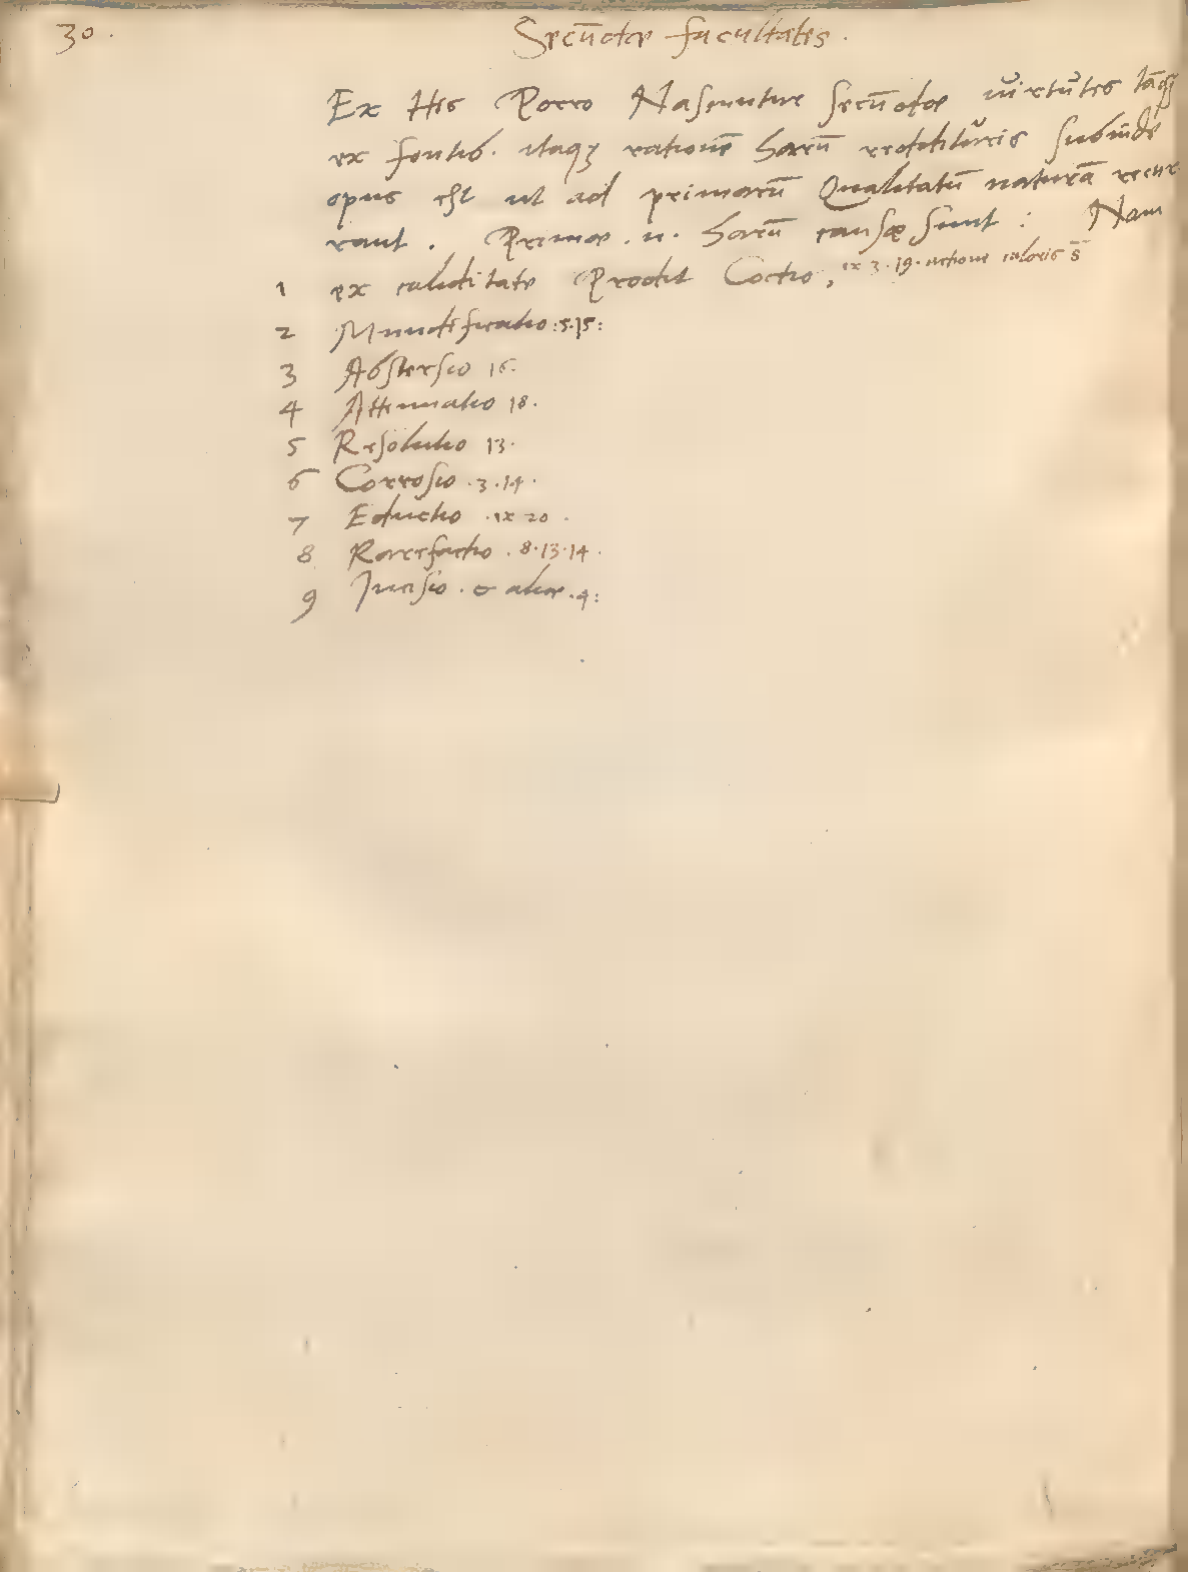 30.
Secūdæ facultates.
Ex His Porro Nascuntur secūdæ virtutes tāq̄
ex fontib. itaqz rationē harū redditūris subinde
opus est ut ad primarū Qualitatū naturā recur
rant. Primæ .n. harū causæ sunt : Nam
1 ex caliditate Prodit Coctio, ex 3.19. actione caloris s̄
2 Mundificatio :5.15:
3 Abstersio 16.
4 Attenuatio 18.
5 Resolutio 13.
6 Corrosio .3.14.
7 Eductio .ix 20.
8 Rarefactio .8.13.14.
9 Incisio. & aliæ .4: